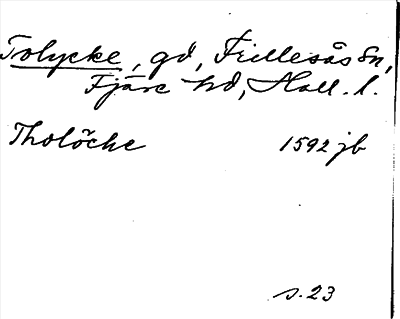 Tolycke, gd, Frillesås sn,
Fjäre hd, Hall. l.
Tholöcke 1592 jb
s. 23